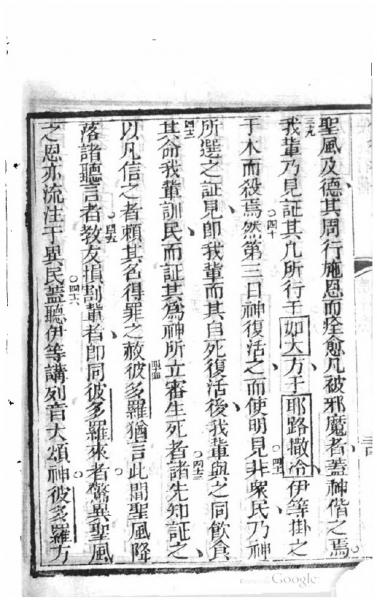 聖風及德其周行施恩而痊愈凡被邪魔者蓋神偕之焉
三九我輩乃見証其凡所行于如大方于耶路撒冷伊等掛之
于木而殺焉四十然第三日神復活之而使明見四一非眾民乃神
所選之証見即我輩而其自死復活後我輩與之同飲食
四二其命我輩訓民而証其為神所立審生死者四三諸先知証之
以凡信之者賴其名得罪之赦四四彼多羅猶言此間聖風降
落諸聽言者四五教友損割輩者即同彼多羅來者驚異聖風
之恩亦流注于異民四六蓋聽伊等講列音大頌神彼多羅方
Google